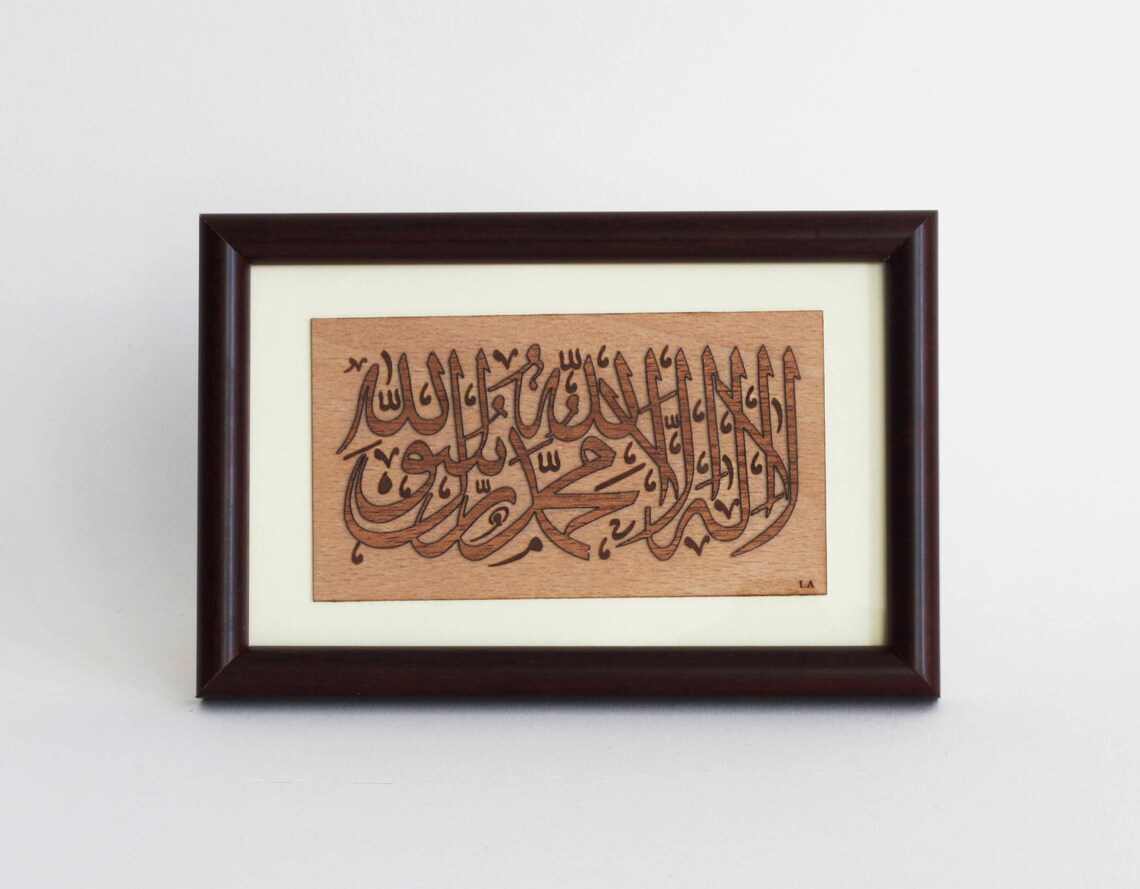 لا إله إلا الله محمد رسول الله
LA